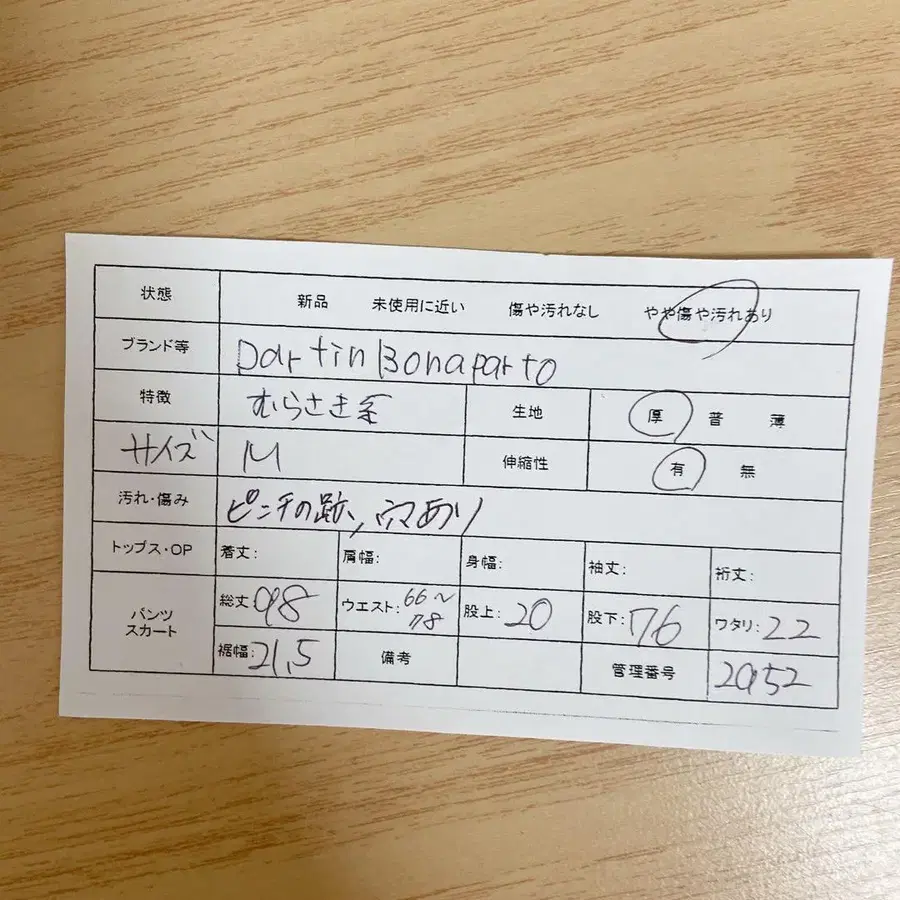 状態 新品 未使用に近い 傷や汚れなし やや傷や汚れあり
ブランド等 Dartin Bonaparto
特徴 むらさき系 生地 厚 普 薄
サイズ M 伸縮性 有 無
汚れ・傷み ピンチの跡、穴あり
トップス・OP 着丈: 肩幅: 身幅: 袖丈: 裄丈:
パンツ スカート 総丈:98 ウエスト:66〜78 股上:20 股下:76 ワタリ:22
裾幅:21.5 備考 管理番号 2952